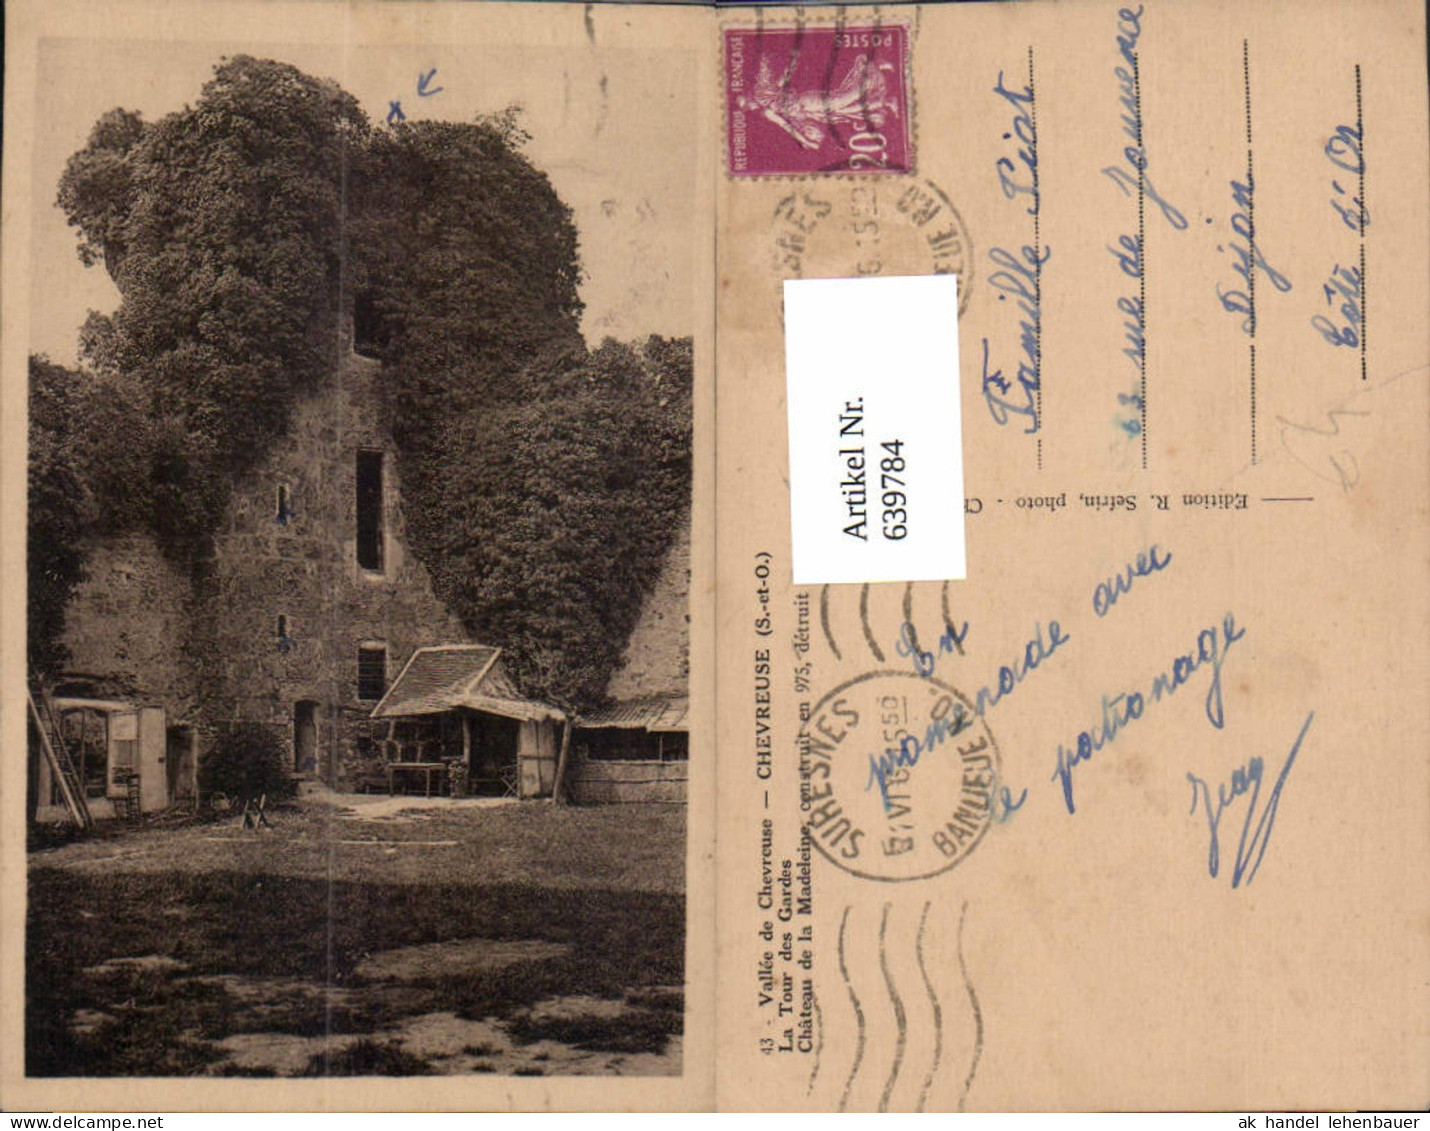 43 - Vallée de Chevreuse — CHEVREUSE (S.-et-O.)
La Tour des Gardes
Château de la Madeleine, construit en 975, détruit
Edition R. Sefrin, photo - Ch
REPUBLIQUE FRANÇAISE
POSTES
20c
SURESNES
BANLIEUE RD
SURESNES
BANLIEUE RD
En
promenade avec
le patronage
Jean
Famille Piot
63 rue de Jouvence
Dijon
Côte d'Or
Artikel Nr.
639784
ak handel lehenbauer